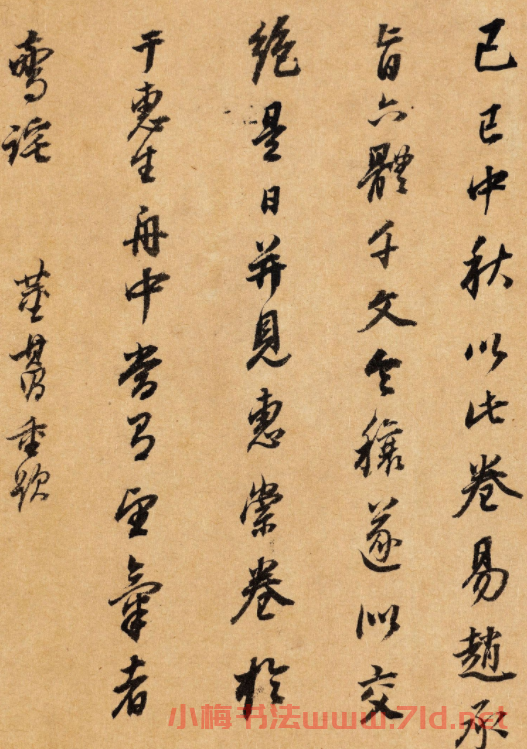 己巳中秋以此卷易趙承
旨六體千文令穰遂似交
絕是日并見惠崇卷於
于惠生舟中當有望氣者
驚詫 董其昌重題
小梅书法www.7ld.net